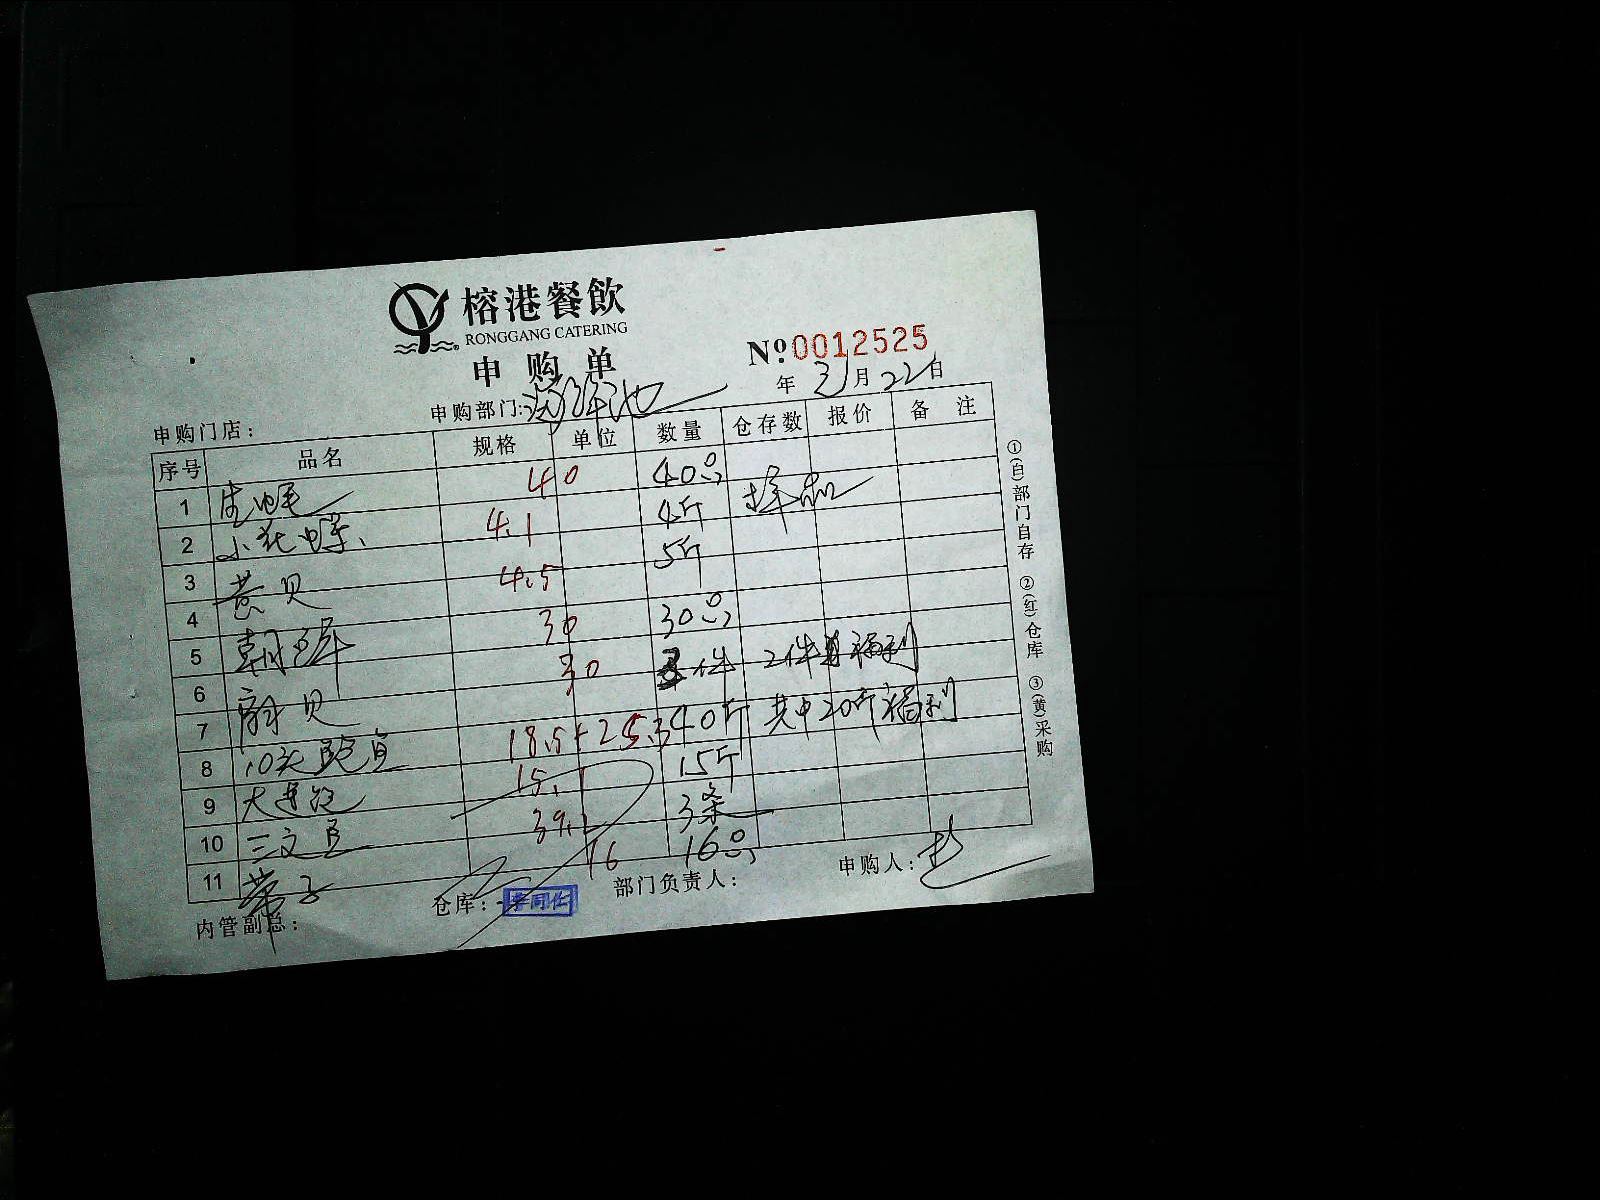 榕港餐飲
RONGGANG CATERING
申购单
№ 0012525
年 3月 22日
申购门店: 申购部门: 海鲜池
序号 品名 规格 单位 数量 仓存数 报价 备注
1 生蚝 40 40只
2 小花螺 4.1 4斤
3 黄贝 4.5 5斤
4 30 30只
5 30 件 2件 福利
6 贝
7 10头鲍鱼 18.5+25.3 40斤 其中20斤福利
8 大连鲍 15.1 15斤
9 三文鱼 39.2 3条
10 16 16只
11
内管副总: 仓库: 部门负责人: 申购人:
①(白)部门自存 ②(红)仓库 ③(黄)采购